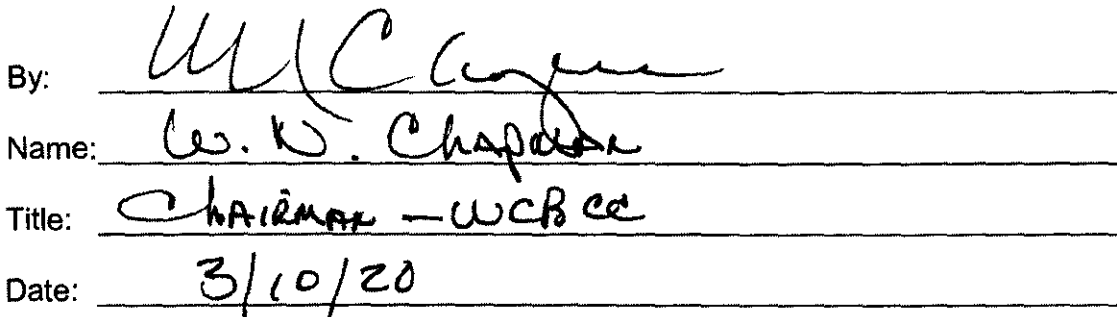 By:
Name: W. N. Chapman
Title: Chairman - WCBCC
Date: 3/10/20